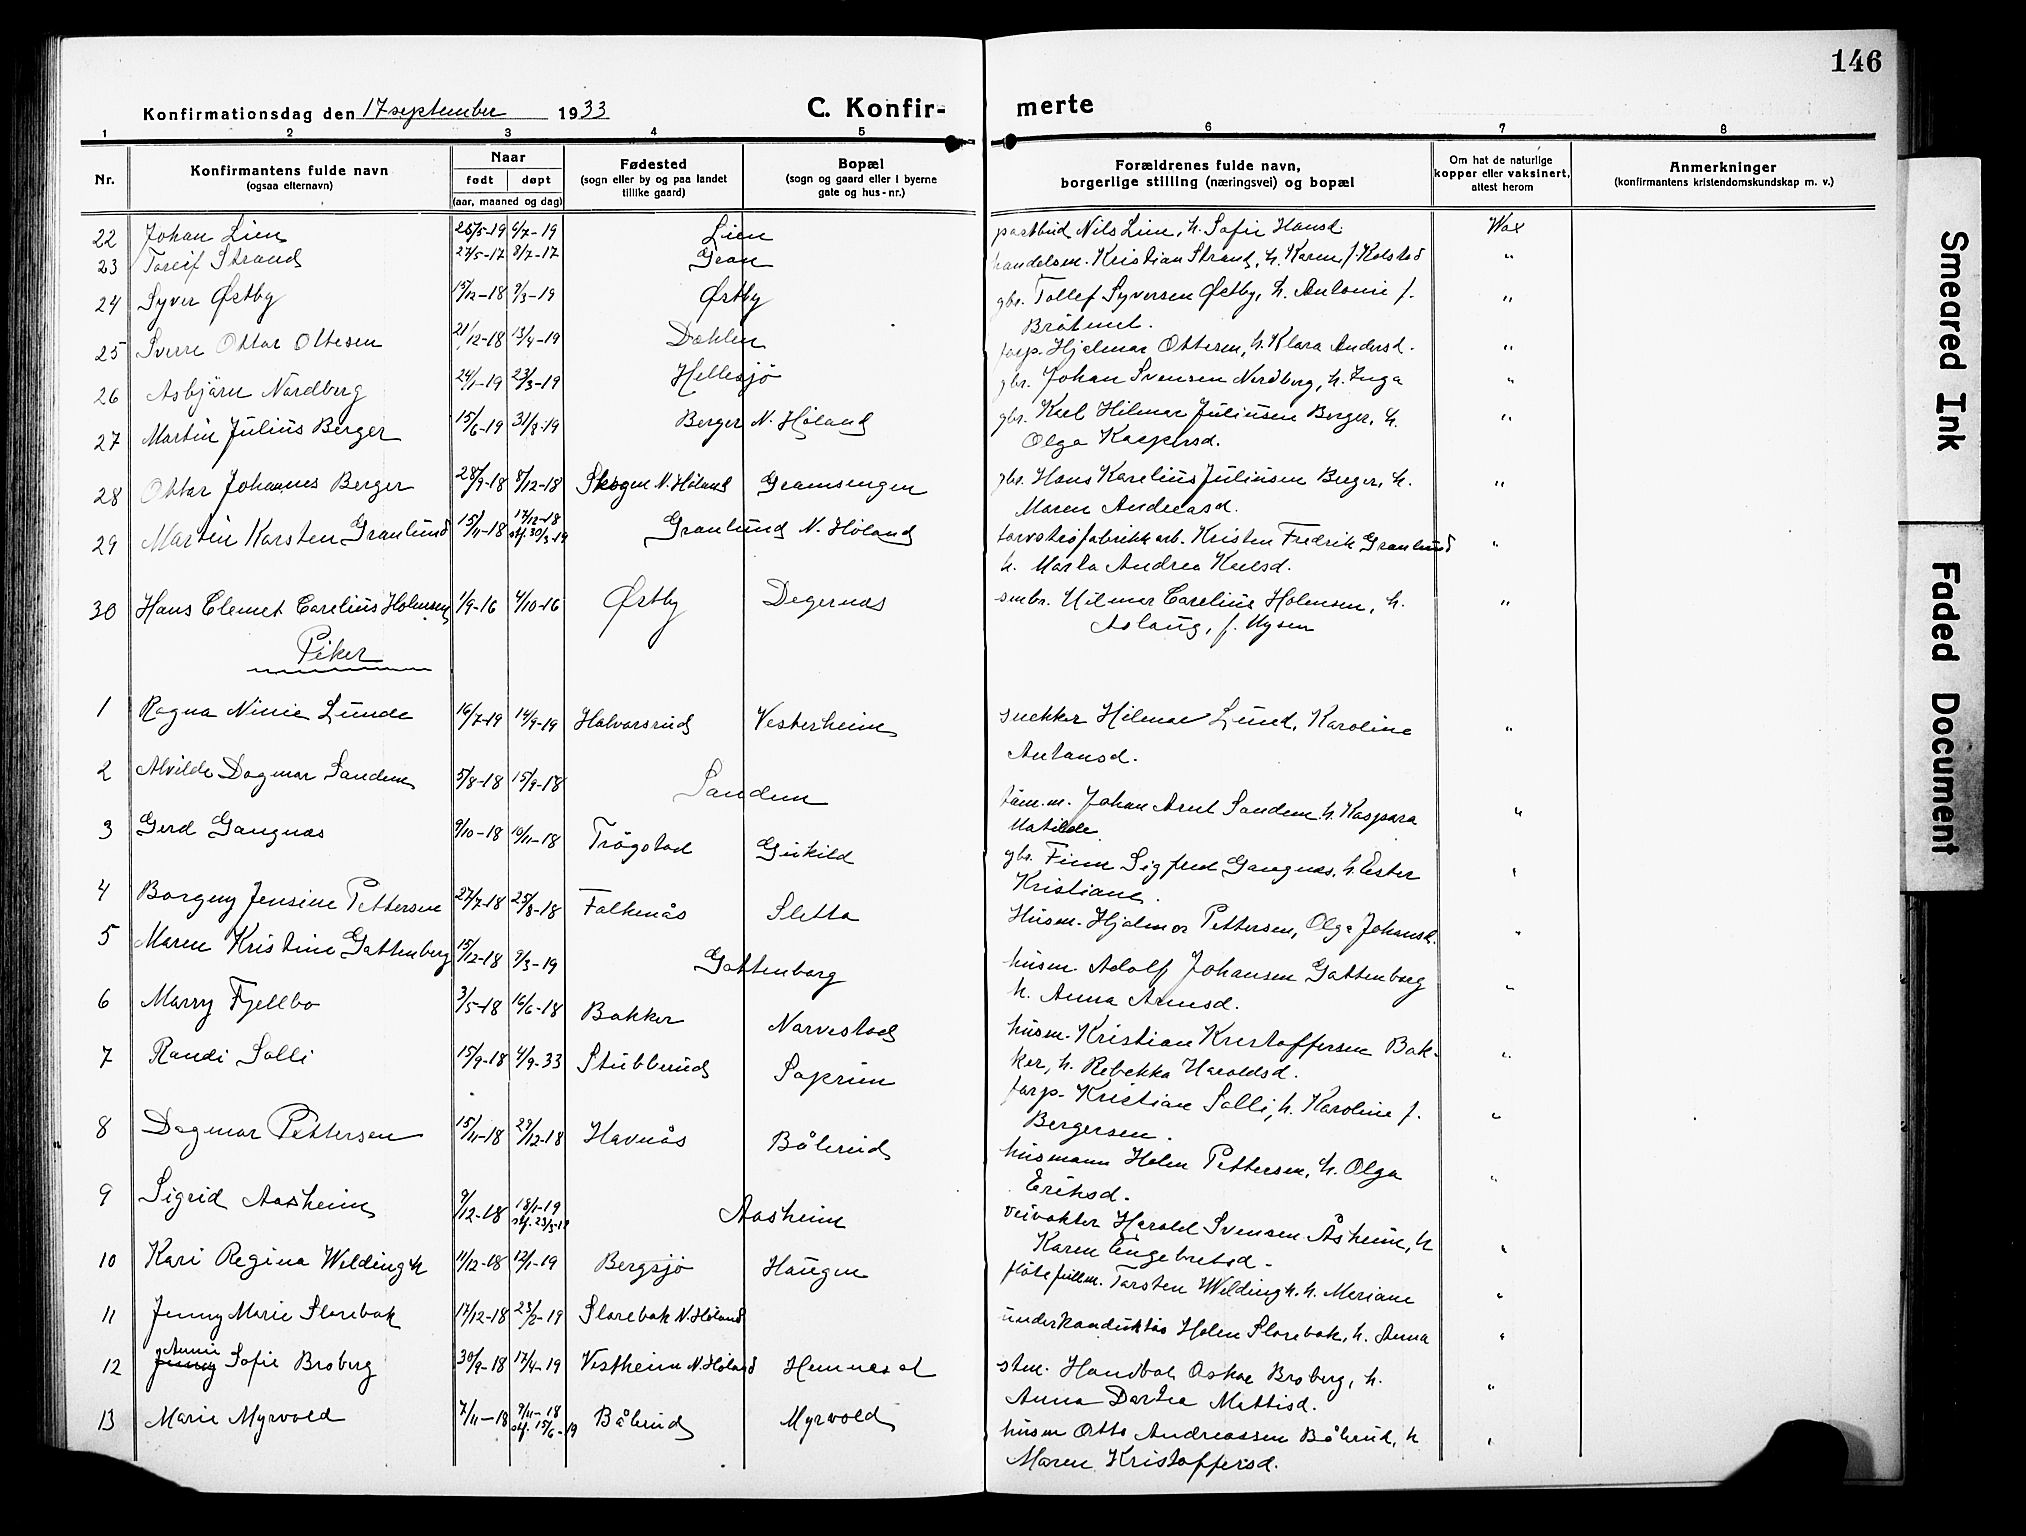 146
Konfirmationsdag den 17 september 1933
C. Konfir-
merte
1 2 3 4 5 6 7 8
Nr.
Konfirmantens fulde navn
(ogsaa efternavn)
Naar
født døpt
(aar, maaned og dag)
Fødested
(sogn eller by og paa landet
tillike gaard)
Bopæl
(sogn og gaard eller i byerne
gate og hus-nr.)
Forældrenes fulde navn,
borgerlige stilling (næringsvei) og bopæl
Om hat de naturlige
kopper eller vaksinert,
attest herom
Anmerkninger
(konfirmantens kristendomskundskap m. v.)
22 Johan Lien 25/5-19 6/7-19 Lien postbud Nils Lien, h. Sofie Hansd. Vax
23 Toreif Strand 27/5-17 8/7-17 Gran handelsm. Kristian Strand, h. Karen f. Kolstad "
24 Syver Østby 15/12-18 9/3-19 Østby gbr. Tollef Syversen Østby, h. Antonie f. "
Bråtenet.
25 Sverre Ottar Ottesen 21/12-18 13/4-19 Dahlen forp. Hjelmar Ottesen, h. Klara Andersd. "
26 Asbjörn Nordberg 24/1-19 23/3-19 Hellesjö gbr. Johan Svensen Nordberg, h. Inga "
27 Martin Julius Berger 15/6-19 31/8-19 Berger N. Höland gbr. Karl Hilmar Juliusen Berger, h. "
Olga Kaspersd.
28 Ottar Johannes Berger 28/9-18 8/12-18 Skogen N. Höland Gramsengen gbr. Hans Karelius Juliusen Berger, h. "
Maren Andreasd.
29 Martin Karsten Granlund 15/11-18 17/12-18 Granlund N. Höland torvströfabrikkarb. Kristen Fredrik Granlund "
stf. 30/3-19
h. Marta Andrea Karlsd.
30 Hans Clemet Carelius Holmsen 1/9-16 4/10-16 Østby Degernæs smbr. Hilmar Carelius Holmsen, h. "
Aslaug, f. Mysen
Piker
1 Ragna Ninie Lunde 16/7-19 14/9-19 Halvorsrud Vesterheim snekker Hilmar Lund, Karoline "
Antonsd.
2 Alvilde Dagmar Sandem 5/8-18 15/9-18 Sandem töm.m. Johan Arnt Sandem h. Kaspara "
Matilde
3 Gerd Gangnæs 9/10-18 10/11-18 Trögstad Gukild gbr. Finn Sigfred Gangnæs, h. Ester "
Kristiane.
4 Borgny Jensine Pettersen 27/7-18 25/8-18 Falkenås Sletta Husm. Hjalmar Pettersen, Olga Johansd. "
5 Maren Kristine Gattenborg 15/12-18 9/3-19 Gattenborg husm. Adolf Johansen Gattenborg "
h. Anna Arnesd.
6 Marry Fjellbo 3/5-18 16/6-18 Bakker Narvestad husm. Kristian Kristoffersen Bak- "
ker, h. Rebekka Haroldsd.
7 Randi Solli 15/9-18 4/9-33 Stubberud Soprim forp. Kristian Solli, h. Karoline f. "
Bergersen.
8 Dagmar Pettersen 15/11-18 29/12-18 Havnås Bålerud husmann Helen Pettersen, h. Olga "
Eriksd.
9 Sigrid Aasheim 9/12-18 18/1-19 Aasheim veivokter Harald Svensen Åsheim, h "
stf. 23/3-19
Karen Engebretsd.
10 Kari Regina Weldingh 11/12-18 12/1-19 Bergsjö Haugen flötefullm. Torsten Weldingh. h. Meriane "
11 Jenny Marie Slorebak 17/12-18 23/2-19 Slorebak N. Höland underkonduktör Helen Slorebak, h. Anna "
12 Jenny Annie Sofie Broberg 30/9-18 17/4-19 Vestheim N. Höland Hemnes st stm. Handbok Oskar Broberg, h. "
Anna Dortea Mattisd.
13 Marie Myrvold 7/11-18 9/11-18 Bålerud Myrvold husm Otto Andreassen Bålerud, h "
stf. 15/6-19
Maren Kristoffersd.
Smeared Ink
Faded Document